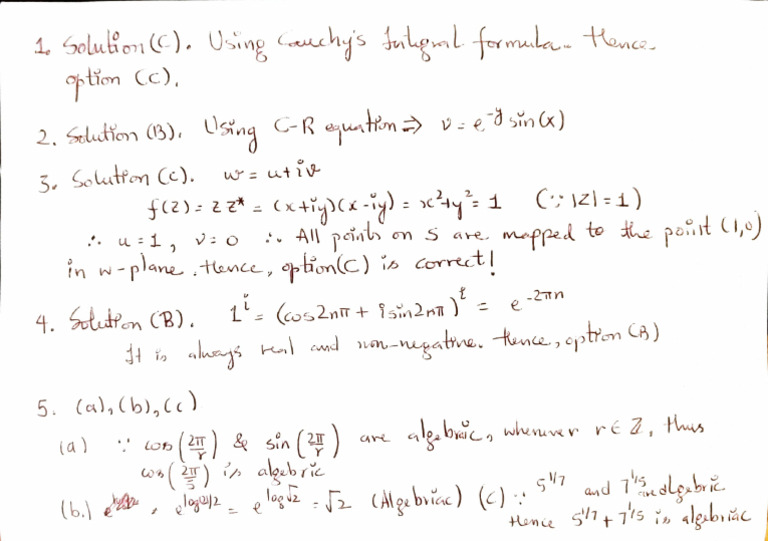 1. Solution (C). Using Cauchy's Integral formula. Hence
option (C).
2. Solution (B). Using C-R equation ⇒ v = e^{-y} sin(x)
3. Solution (C). w = u + iv
f(z) = z z* = (x+iy)(x-iy) = x²+y² = 1 (∵ |z| = 1)
∴ u = 1, v = 0 ∴ All points on S are mapped to the point (1,0)
in w-plane. Hence, option (C) is correct!
4. Solution (B). 1^i = (cos 2nπ + i sin 2nπ)^i = e^{-2πn}
It is always real and non-negative. Hence, option (B)
5. (a), (b), (c)
(a) ∵ cos(2π/r) & sin(2π/r) are algebraic, whenever r ∈ ℤ, thus
cos(2π/5) is algebric
(b.) , e^{log(2)/2} = e^{log √2} = √2 (Algebriac) (C) ∵ 5^{1/7} and 7^{1/5} are algebric
Hence 5^{1/7} + 7^{1/5} is algebriac